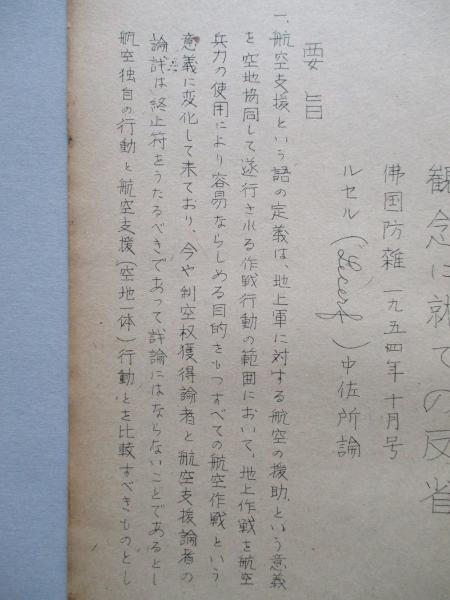 観念に就ての反省
佛国防雑 一九五四年 十月号
ルセル (Lecerf) 中佐所論
要旨
一、航空支援という語の定義は、地上軍に対する航空の援助、という意義
を空地協同して遂行される作戦行動の範囲において、地上作戦を航空
兵力の使用により容易ならしめる目的をもつすべての航空作戦という
意義に変化して来ており、今や制空権獲得論者と航空支援論者の
論諍は終止符をうたるべきであって諍論にはならないことであるとし
航空独自の行動と航空支援(空地一体)行動とを比較すべきものとし